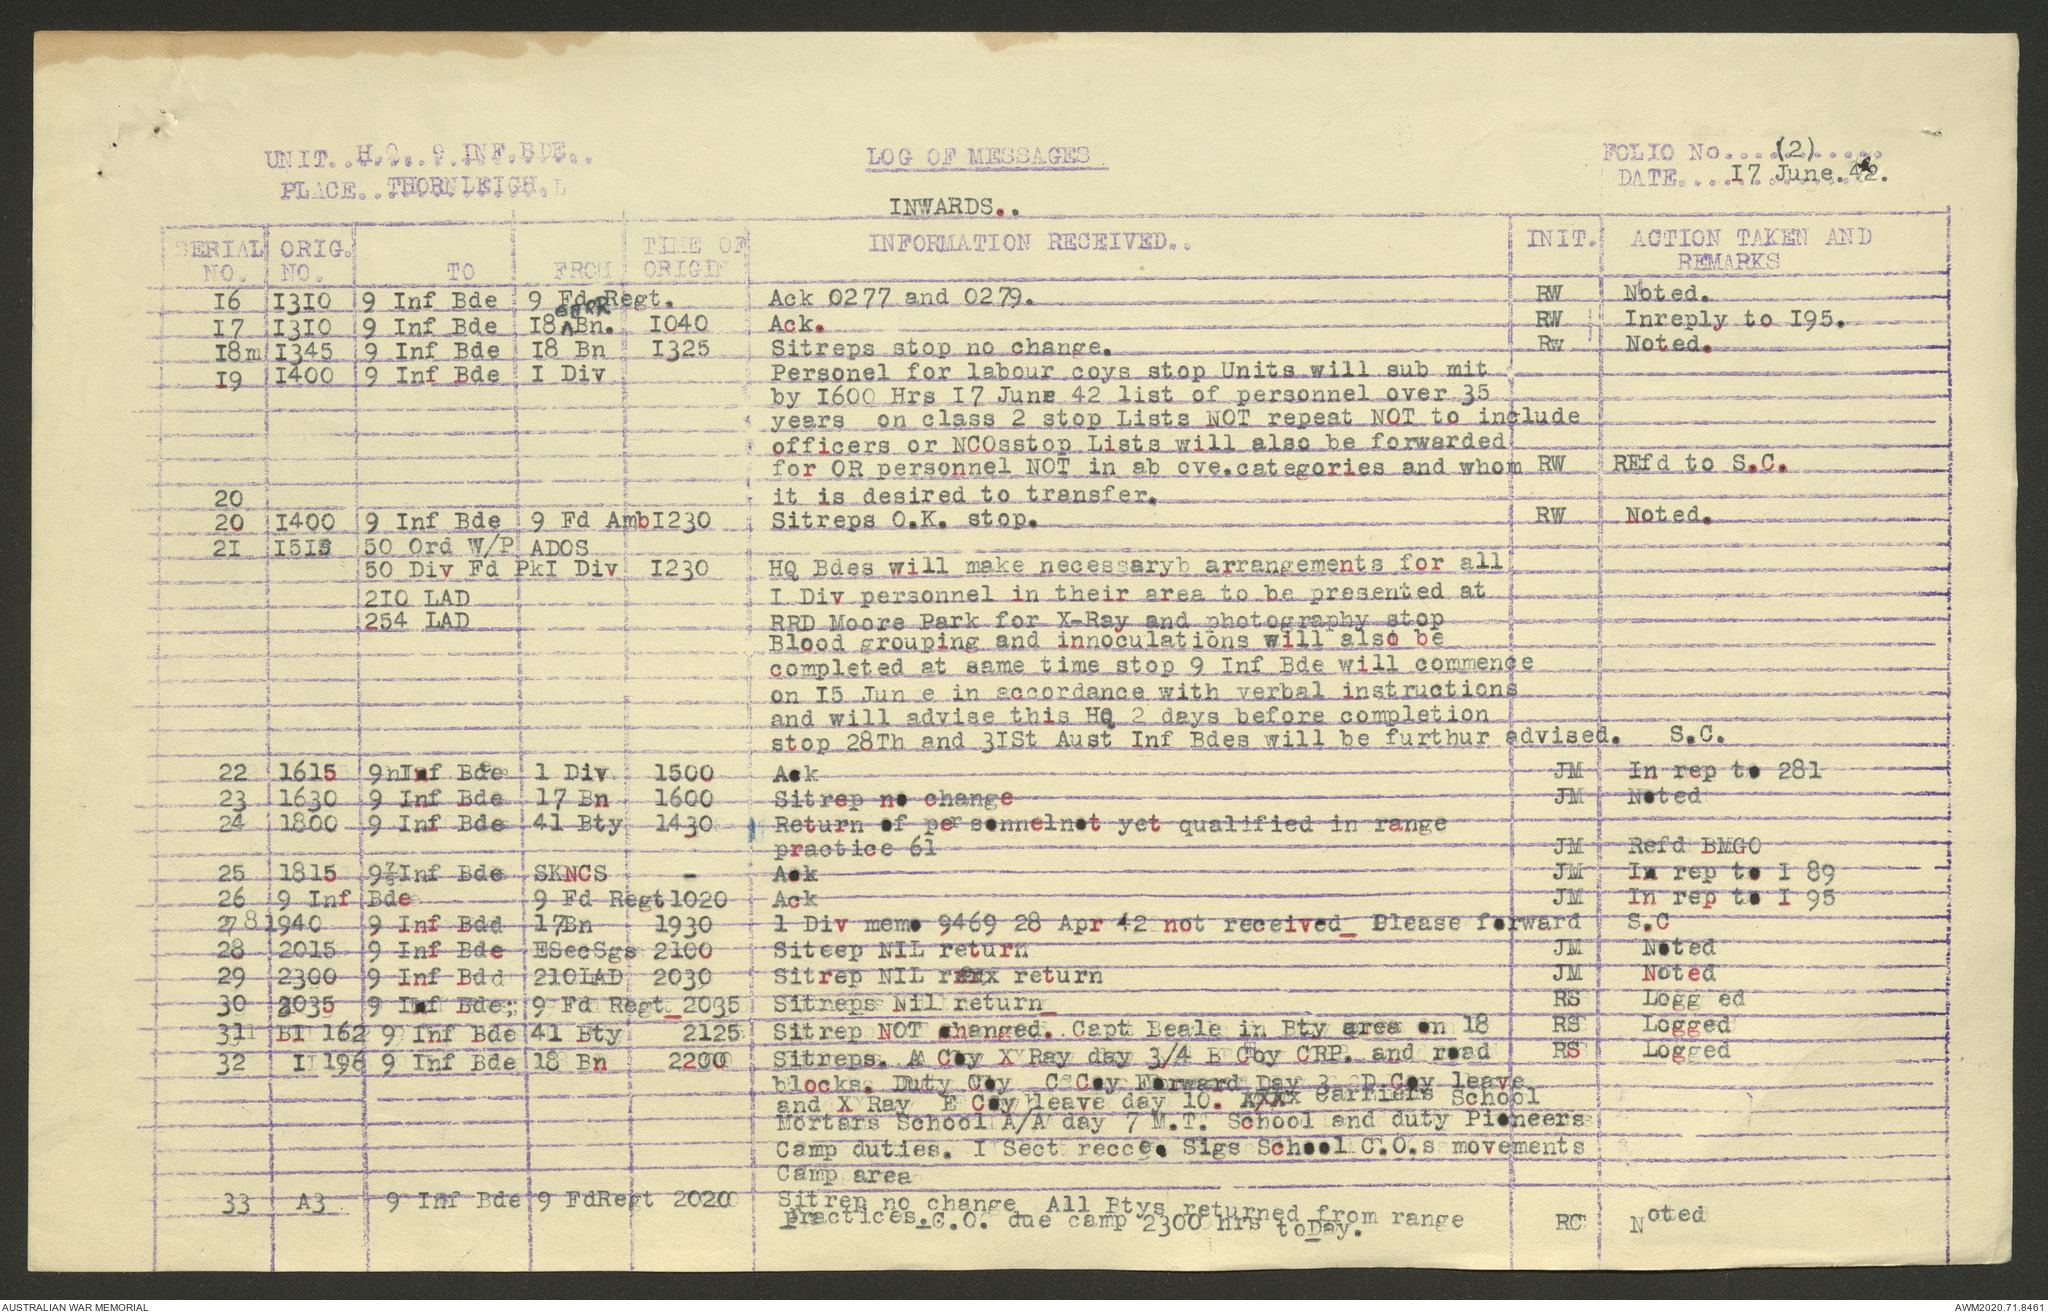 UNIT..H.Q..9.INF.BDE..
LOG OF MESSAGES
FOLIO No....(2).....
PLACE..THORNLEIGH.
DATE....17 June.42.
INWARDS..
SERIAL NO. ORIG. NO. TO FROM TIME OF ORIGIN INFORMATION RECEIVED.. INIT. ACTION TAKEN AND REMARKS
I6 I3I0 9 Inf Bde 9 Fd Regt. Ack 0277 and 0279. RW Noted.
I7 I3I0 9 Inf Bde I8 Bn. I040 Ack. RW Inreply to I95.
I8m I345 9 Inf Bde I8 Bn I325 Sitreps stop no change. Rw Noted.
I9 I400 9 Inf Bde I Div Personel for labour coys stop Units will sub mit
by I600 Hrs I7 June 42 list of personnel over 35
years on class 2 stop Lists NOT repeat NOT to include
officers or NCOsstop Lists will also be forwarded
for OR personnel NOT in ab ove.categories and whom RW REfd to S.C.
20 it is desired to transfer.
20 I400 9 Inf Bde 9 Fd Amb I230 Sitreps O.K. stop. RW Noted.
2I I5I5 50 Ord W/P ADOS
50 Div Fd PkI Div I230 HQ Bdes will make necessaryb arrangements for all
2I0 LAD I Div personnel in their area to be presented at
254 LAD RRD Moore Park for X-Ray and photography stop
Blood grouping and innoculations will also be
completed at same time stop 9 Inf Bde will commence
on I5 Jun e in accordance with verbal instructions
and will advise this HQ 2 days before completion
stop 28Th and 3ISt Aust Inf Bdes will be furthur advised. S.C.
22 1615 9nInf Bde 1 Div 1500 Ack JM In rep to 281
23 1630 9 Inf Bde 17 Bn 1600 Sitrep no change JM Noted
24 1800 9 Inf Bde 41 Bty 1430 Return of personnelnot yet qualified in range
practice 61 JM Refd BMGO
25 1815 9 Inf Bde SKNCS - Ack JM In rep to I 89
26 9 Inf Bde 9 Fd Regt 1020 Ack JM In rep to I 95
278 1940 9 Inf Bdd 17Bn 1930 1 Div memo 9469 28 Apr 42 not received_ Please forward S.C
28 2015 9 Inf Bde ESecSgs 2100 Siteep NIL return JM Noted
29 2300 9 Inf Bdd 210LAD 2030 Sitrep NIL return JM Noted
30 2035 9 Inf Bde; 9 Fd Regt_2035 Sitreps Nil return_ RS Logg ed
31 BI 162 9 Inf Bde 41 Bty 2125 Sitrep NOT changed. Capt Beale in Bty area on 18 RS Logged
32 I 196 9 Inf Bde 18 Bn 2200 Sitreps. A Coy X Ray day 3/4 B Coy CRP. and road RS Logged
blocks. Duty Coy C Coy Forward Day 3 D Coy leave
and X Ray E Coy leave day 10. carriers School
Mortars School A/A day 7 M.T. School and duty Pioneers
Camp duties. I Sect recce. Sigs School C.O.s movements
Camp area
33 A3 9 Inf Bde 9 FdRegt 2020 Sitrep no change All Btys returned from range
practices.C.O. due camp 2300 hrs toDay. RC Noted
AUSTRALIAN WAR MEMORIAL
AWM2020.71.8461